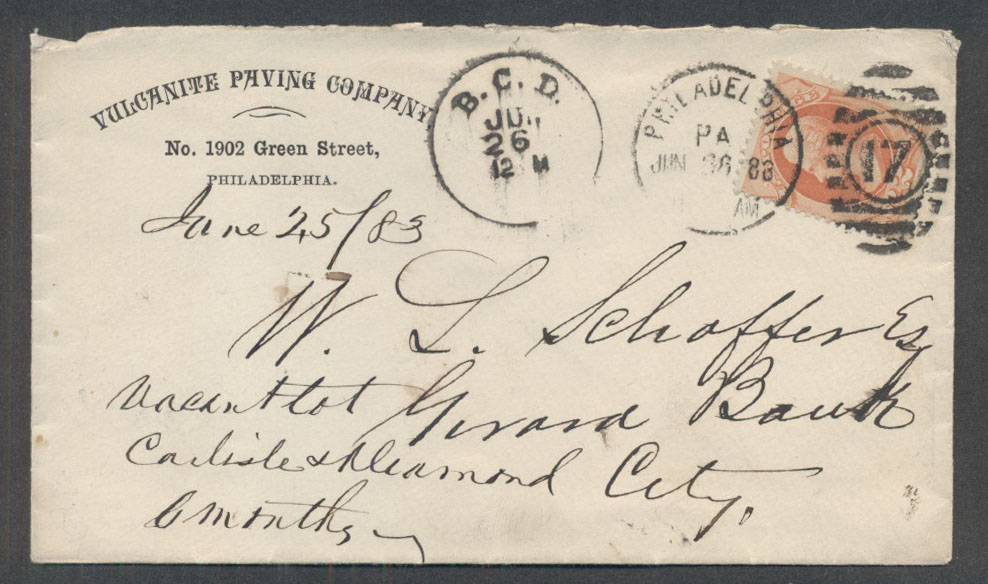 VULCANITE PAVING COMPANY
No. 1902 Green Street,
PHILADELPHIA.
B. C. D.
JUN
26
12 M
PHILADELPHIA
PA
JUN 26 83
AM
17
June 25/83
W. L. Schaffer Esq
Girard Bank
City.
Vacant lot
Carlisle & Diamond
6 months